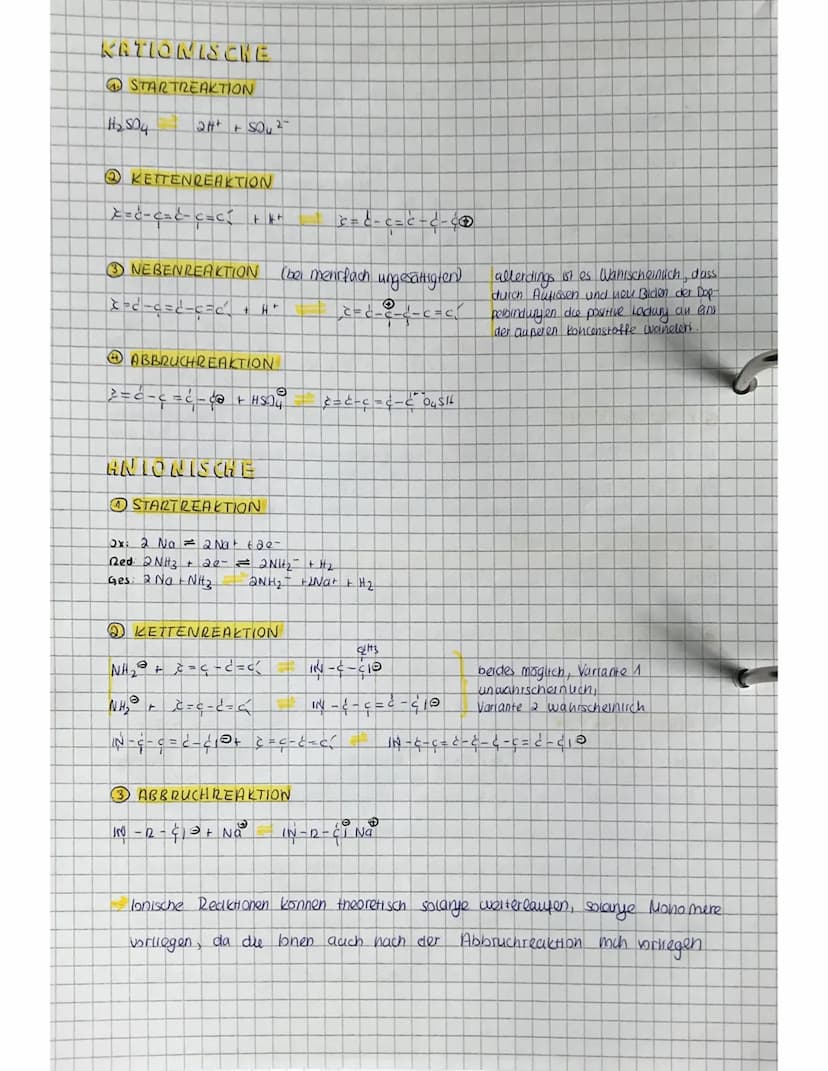 KATIONISCHE
① STARTREAKTION
H₂SO₄ ⇌ 2H⁺ + SO₄²⁻
② KETTENREAKTION
C=C-C=C-C=C + H⁺ ⇌ C=C-C=C-C-C⊕
③ NEBENREAKTION (bei mehrfach ungesättigten)
C=C-C=C-C=C + H⁺ ⇌ C=C-C⊕-C-C=C
allerdings ist es Wahrscheinlich, dass
durch Auflösen und neu Bilden der Dop-
pelbindungen die positive Ladung an eins
der äußeren Kohlenstoffe wandert.
④ ABBRUCHREAKTION
C=C-C=C-C⊕ + HSO₄⊖ ⇌ C=C-C=C-C O₄SH
ANIONISCHE
① STARTREAKTION
Ox: 2 Na ⇌ 2Na⁺ + 2e⁻
Red: 2NH₃ + 2e⁻ ⇌ 2NH₂⁻ + H₂
Ges: 2Na + NH₃ ⇌ 2NH₂⁻ + 2Na⁺ + H₂
② KETTENREAKTION
NH₂⊖ + C=C-C=C ⇌ IN-C-C|⊖
NH₂⊖ + C=C-C=C ⇌ IN-C-C=C-C|⊖
beides möglich, Variante 1
unwahrscheinlich,
Variante 2 wahrscheinlich
IN-C-C=C-C|⊖ + C=C-C=C ⇌ IN-C-C=C-C-C-C=C-C|⊖
③ ABBRUCHREAKTION
IN-R-C|⊖ + Na⊕ ⇌ IN-R-C|⊖ Na⊕
→ Ionische Reaktionen können theoretisch solange weiterlaufen, solange Monomere
vorliegen, da die Ionen auch nach der Abbruchreaktion noch vorliegen